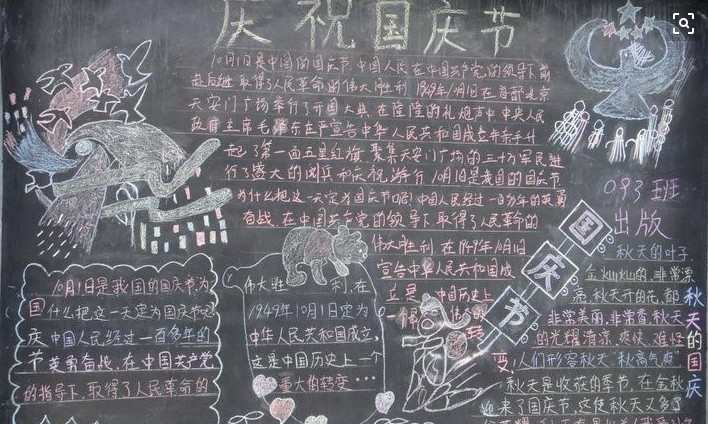 庆祝国庆节
10月1日是中国的国庆节,中国人民在中国共产党的领导下前
赴后继 取得了人民革命的伟大胜利 1949年10月1日在首都北京
天安门广场举行了开国大典,在隆隆的礼炮声中 中央人民
政府主席毛泽东庄严宣告中华人民共和国成立并亲手升
起了第一面五星红旗 聚集天安门广场的三十万军民进
行了盛大的阅兵和庆祝游行 10月1日是我国的国庆节
为什么把这一天定为国庆节呢?中国人民经过一百多年的英勇
奋战,在中国共产党的领导下 取得了人民革命的
伟大胜利 在1949年10月1日
宣告中华人民共和国成
立是 中国历史上
一个
国庆节
093班
出版
10月1日是我国的国庆节,为
什么把这一天定为国庆节呢
中国人民经过一百多年的
英勇奋战,在中国共产党
的指导下,取得了人民革命的
国庆节
伟大胜 利,在
1949年10月1日定为
中华人民共和国成立,
这是中国历史上一个
重大的转变…
秋天的叶子,
金灿灿的,非常漂
亮,秋天开的花,都
非常美丽,非常香,秋天
的光耀,清凉,爽快,难怪
人们形容秋天"秋高气爽"
秋天是收获的季节,在金秋
来了国庆节,这使秋天又多了
秋天的国庆